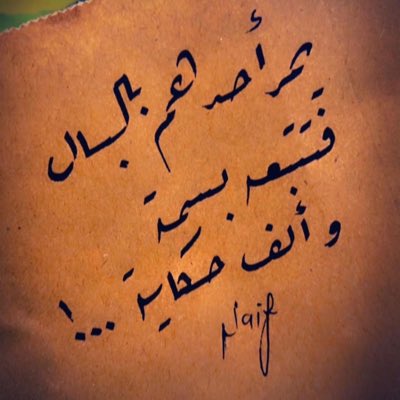 يمر أحدهم بالبال
فتتبعه بسمة
وألف حكاية ...!
Naif